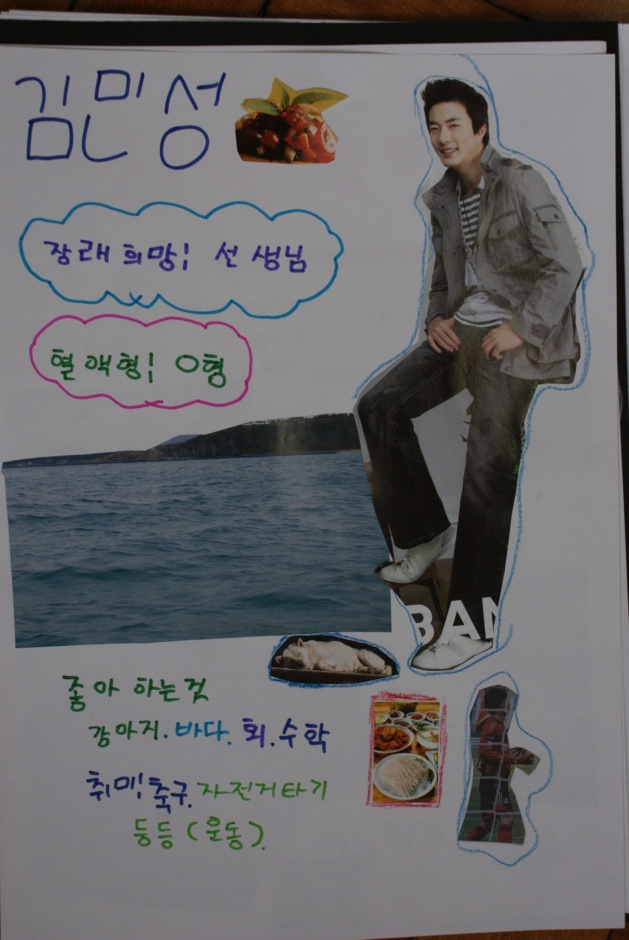 김민성
장래 희망: 선생님
혈액형: O형
BAN
좋아 하는것
강아지. 바다. 회. 수학
취미: 축구. 자전거타기
등등 (운동).